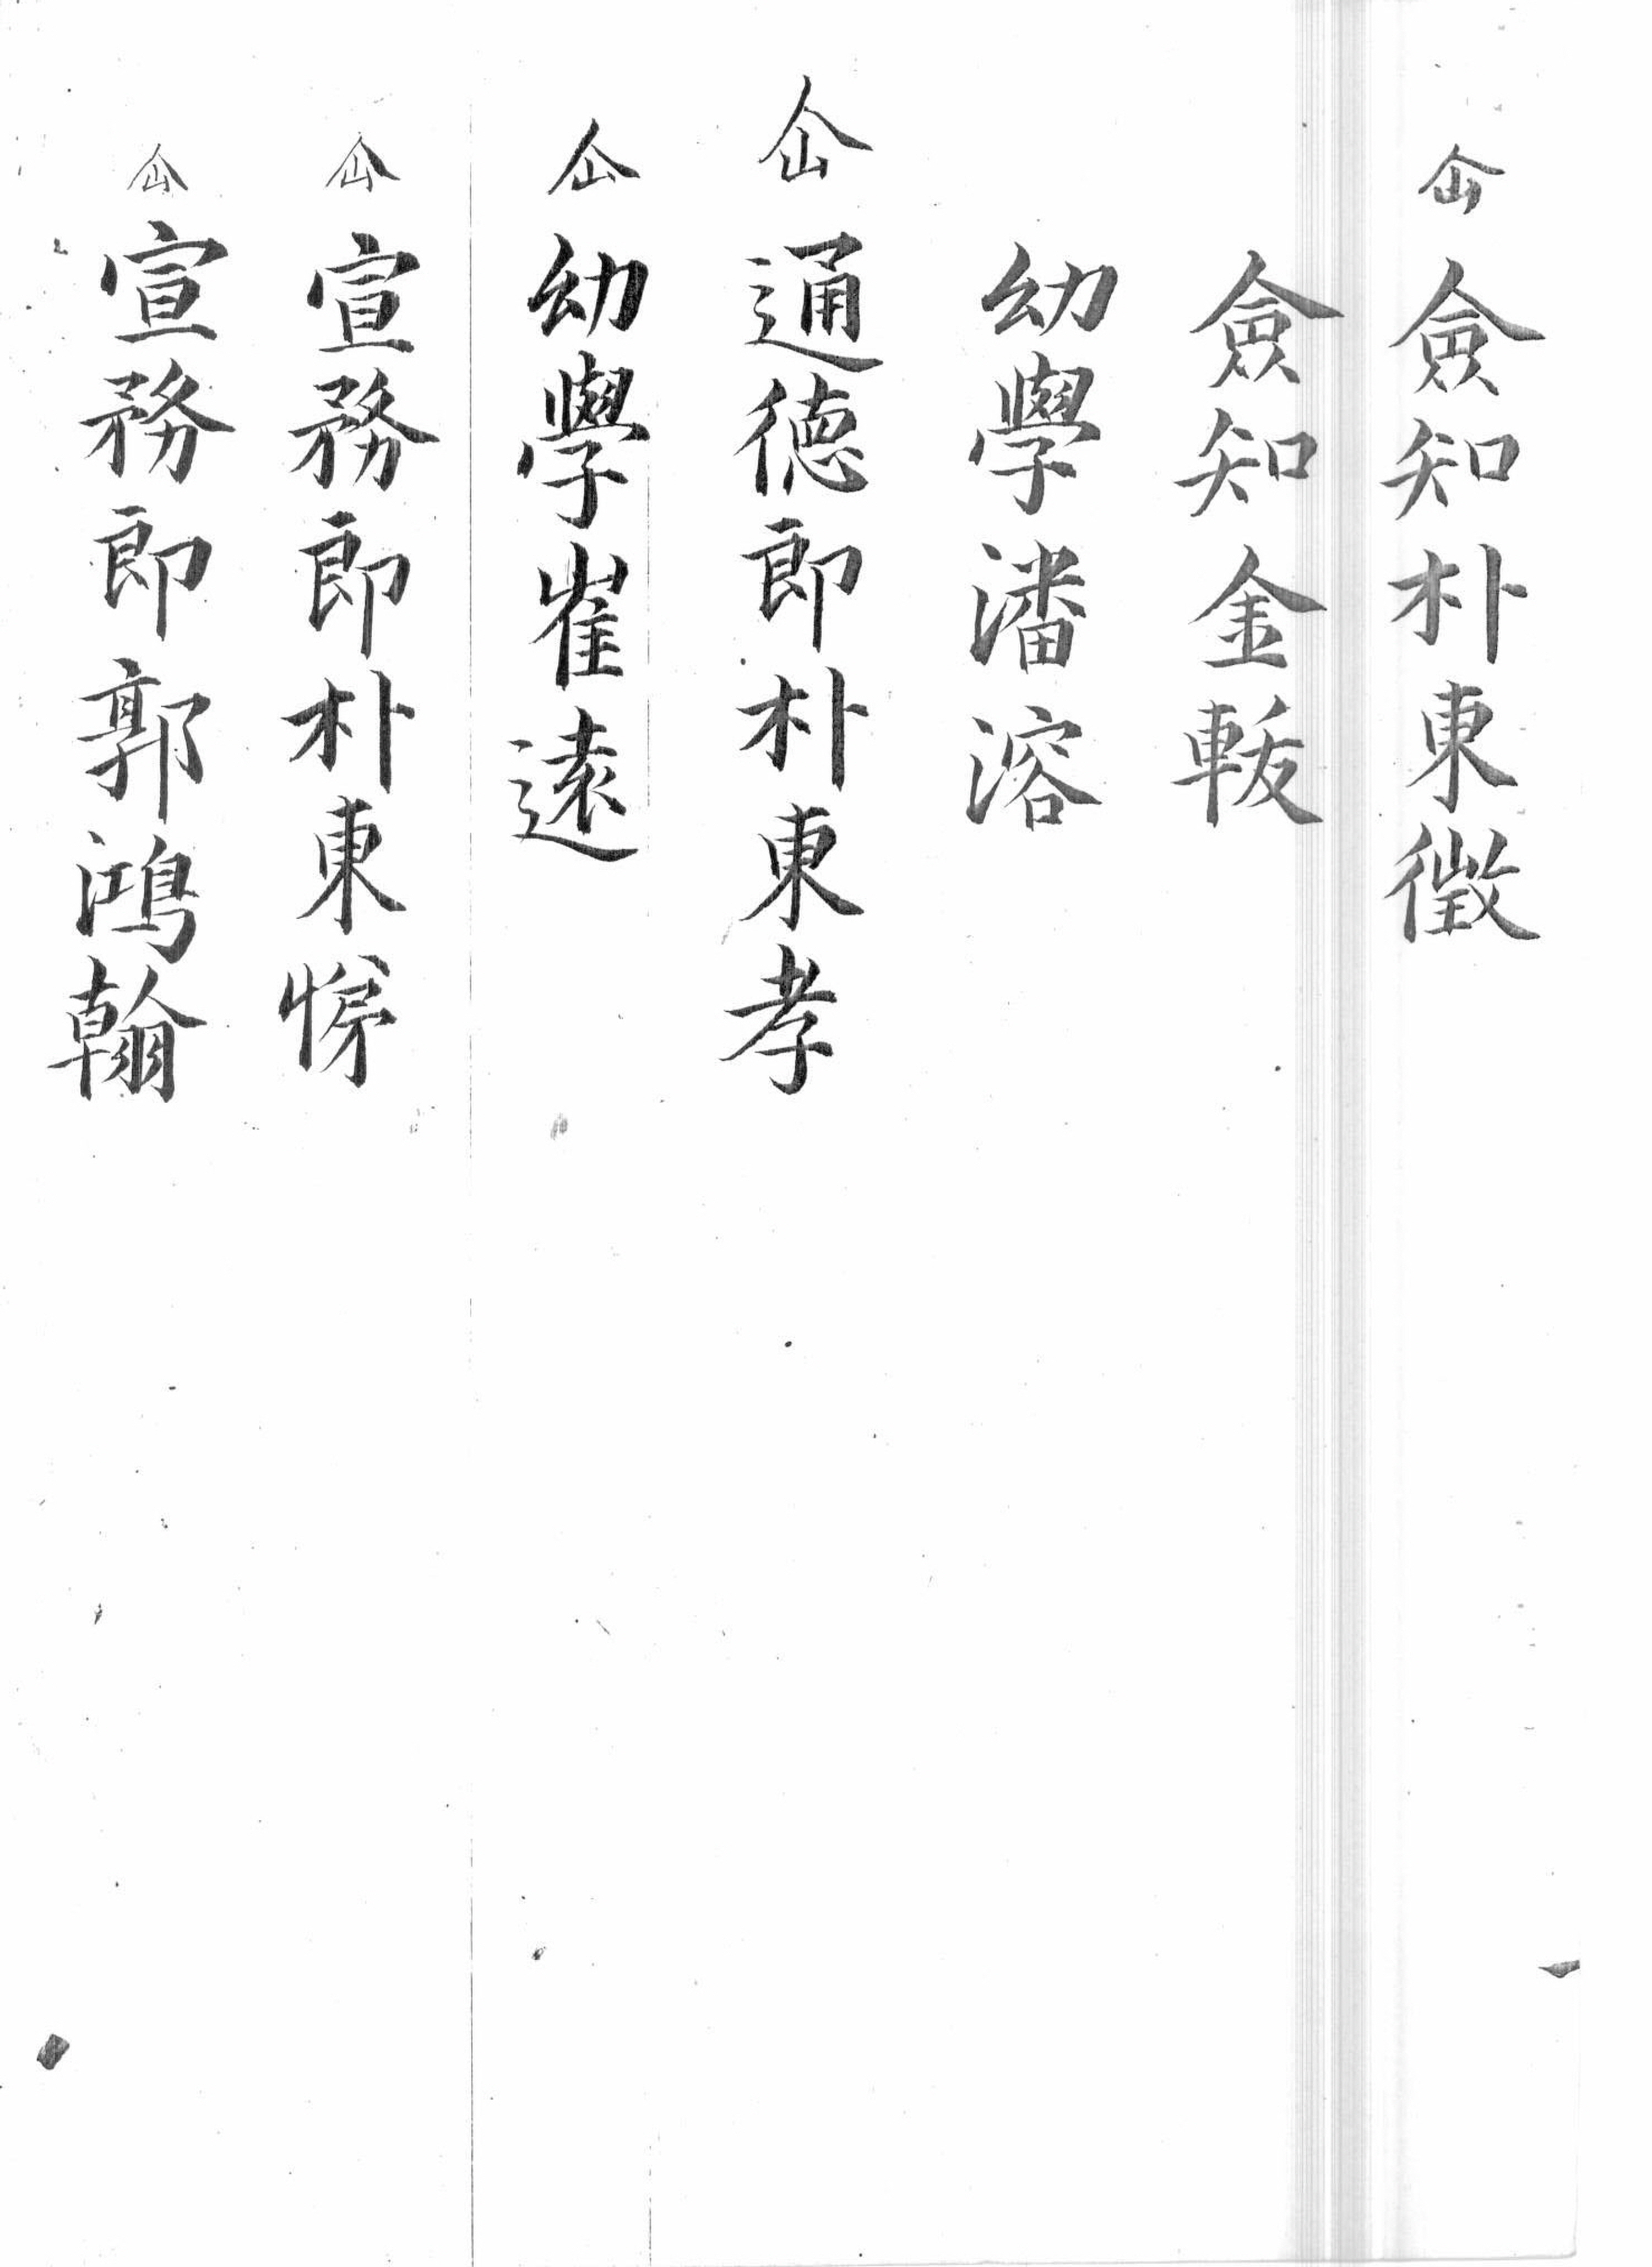 仚 僉知朴東徵
僉知金軷
幼學潘溶
仚 通德郎朴東孝
仚 幼學崔遠
仚 宣務郎朴東悌
仚 宣務郎郭鴻翰